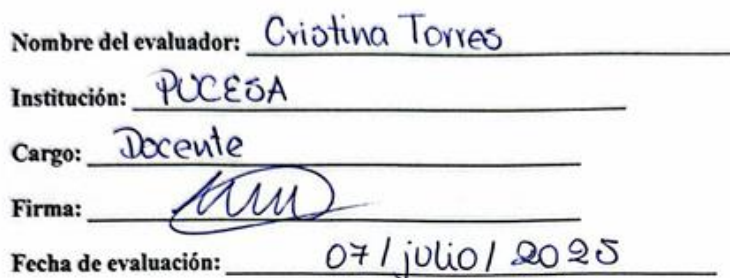 Nombre del evaluador: Cristina Torres
Institución: PUCESA
Cargo: Docente
Firma:
Fecha de evaluación: 07 / julio / 2025